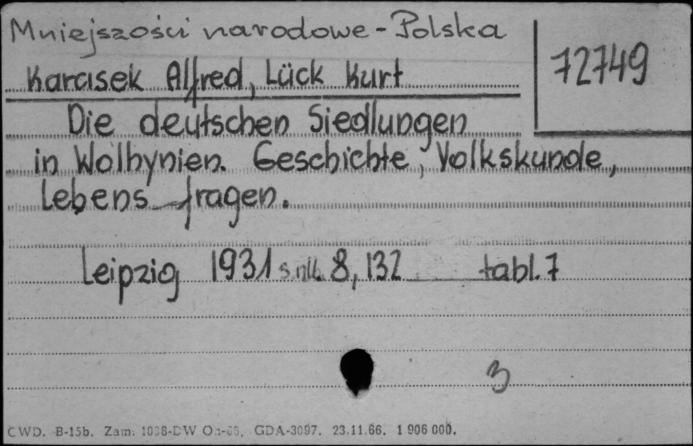 Mniejszości narodowe - Polska
72749
Karasek Alfred, Lück Kurt
Die deutschen Siedlungen
in Wolhynien. Geschichte, Volkskunde,
Lebens fragen.
Leipzig 1931 s.nlb. 8, 132 tabl. 7
3
CWD. B-15b. Zam. GDA-3097. 23.11.66. 1 906 000.